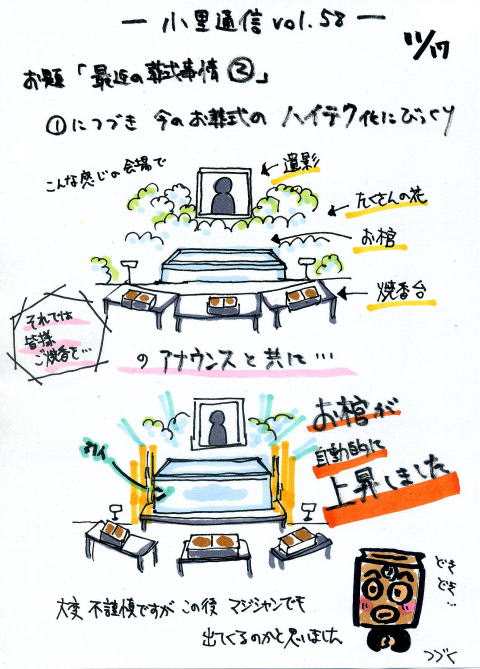 — 小里通信 vol.58 —
11/17
お題「最近の葬式事情②」
①につづき 今のお葬式の ハイテク化にびっくり
こんな感じの会場で
遺影
たくさんの花
お棺
焼香台
それでは
皆様
ご焼香を…
の アナウンスと共に…
お棺が
自動的に
上昇しました
ウイーン
どき
どき…
大変 不謹慎ですが この後 マジシャンでも
出てくるのかと思いました
つづく